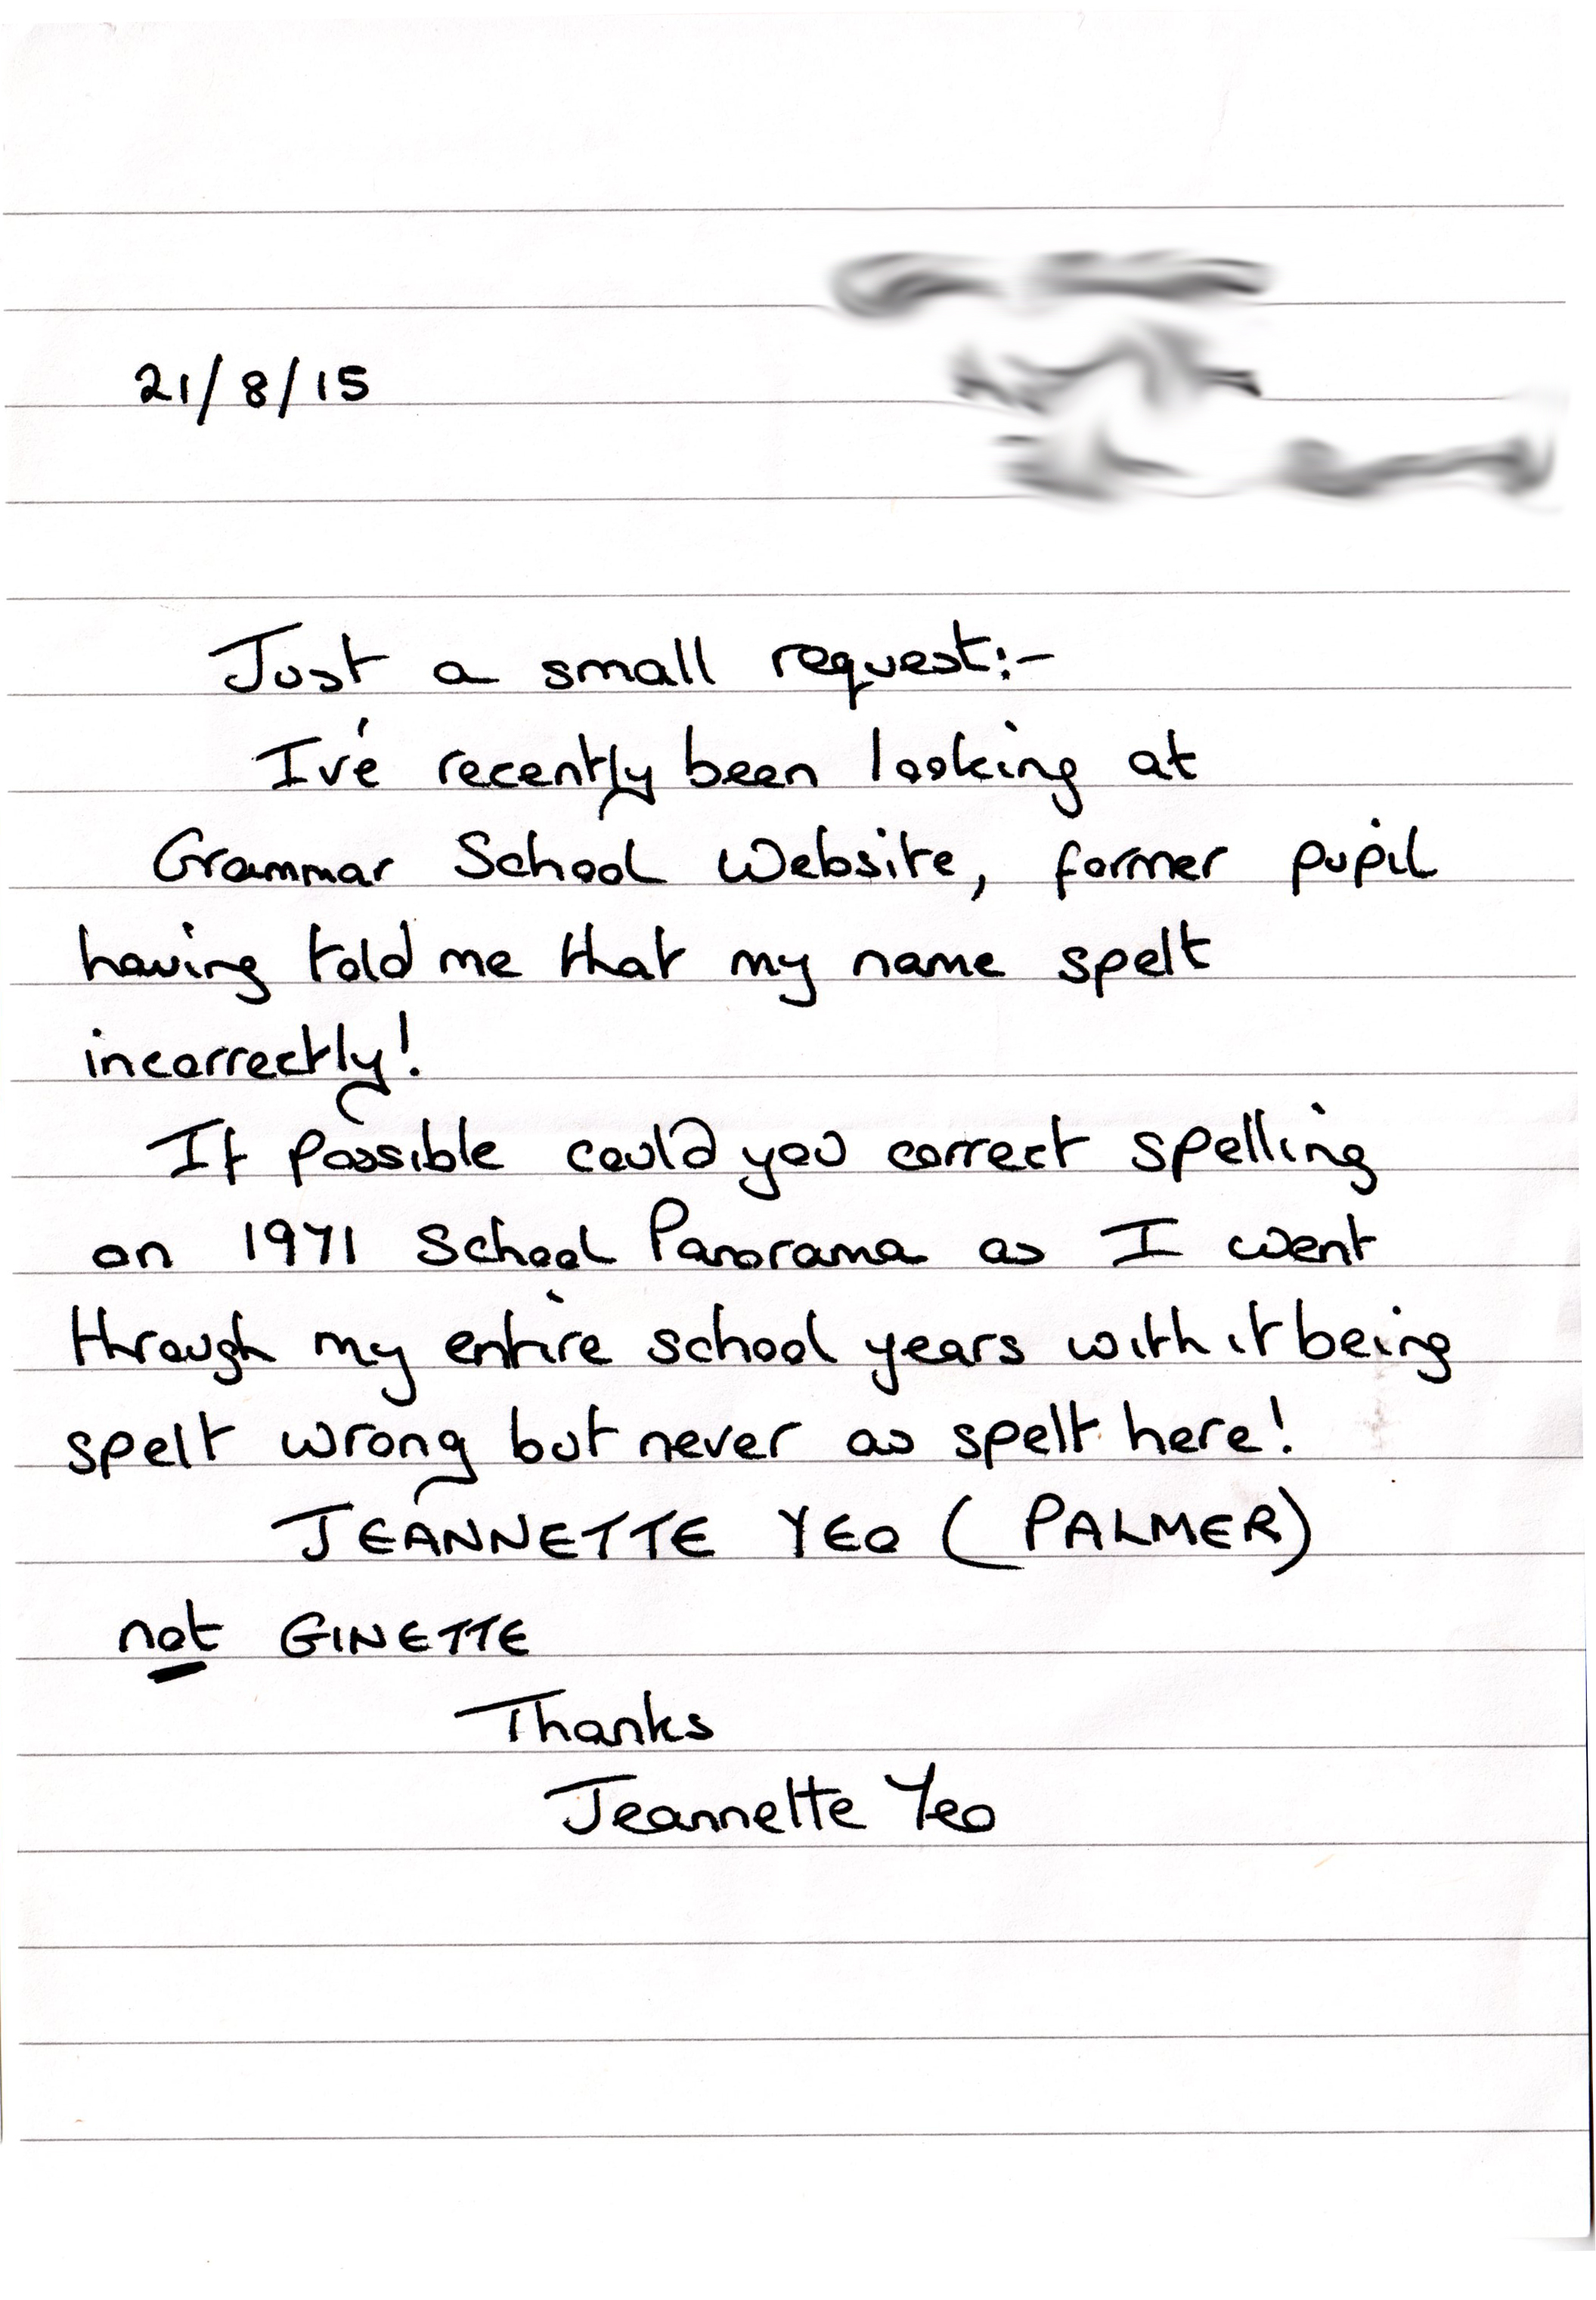 21/8/15
Just a small request:-
I've recently been looking at
Grammar School Website, former pupil
having told me that my name spelt
incorrectly!
If possible could you correct spelling
on 1971 School Panorama as I went
through my entire school years with it being
spelt wrong but never as spelt here!
JEANNETTE YEO (PALMER)
not GINETTE
Thanks
Jeannette Yeo